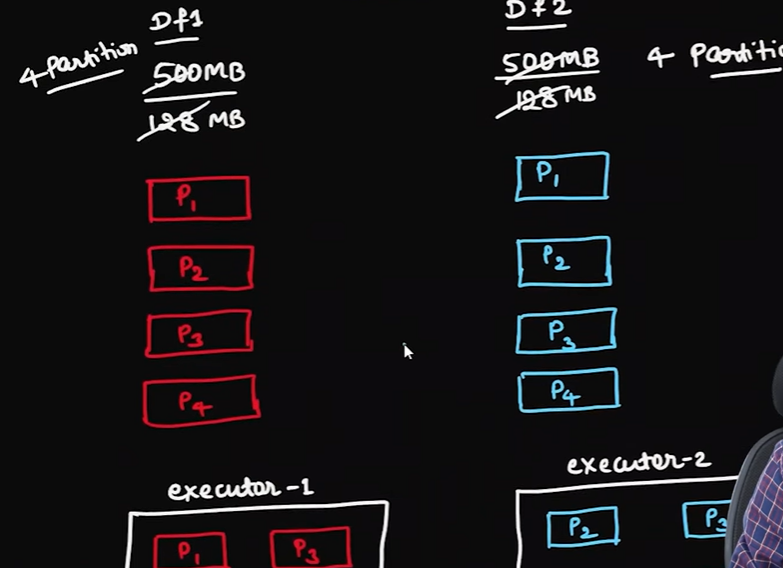 Df1
4 Partition
500MB
128 MB
P1
P2
P3
P4
executor-1
P1 P3
Df2
500MB
4 Partiti
128 MB
P1
P2
P3
P4
executor-2
P2 P3